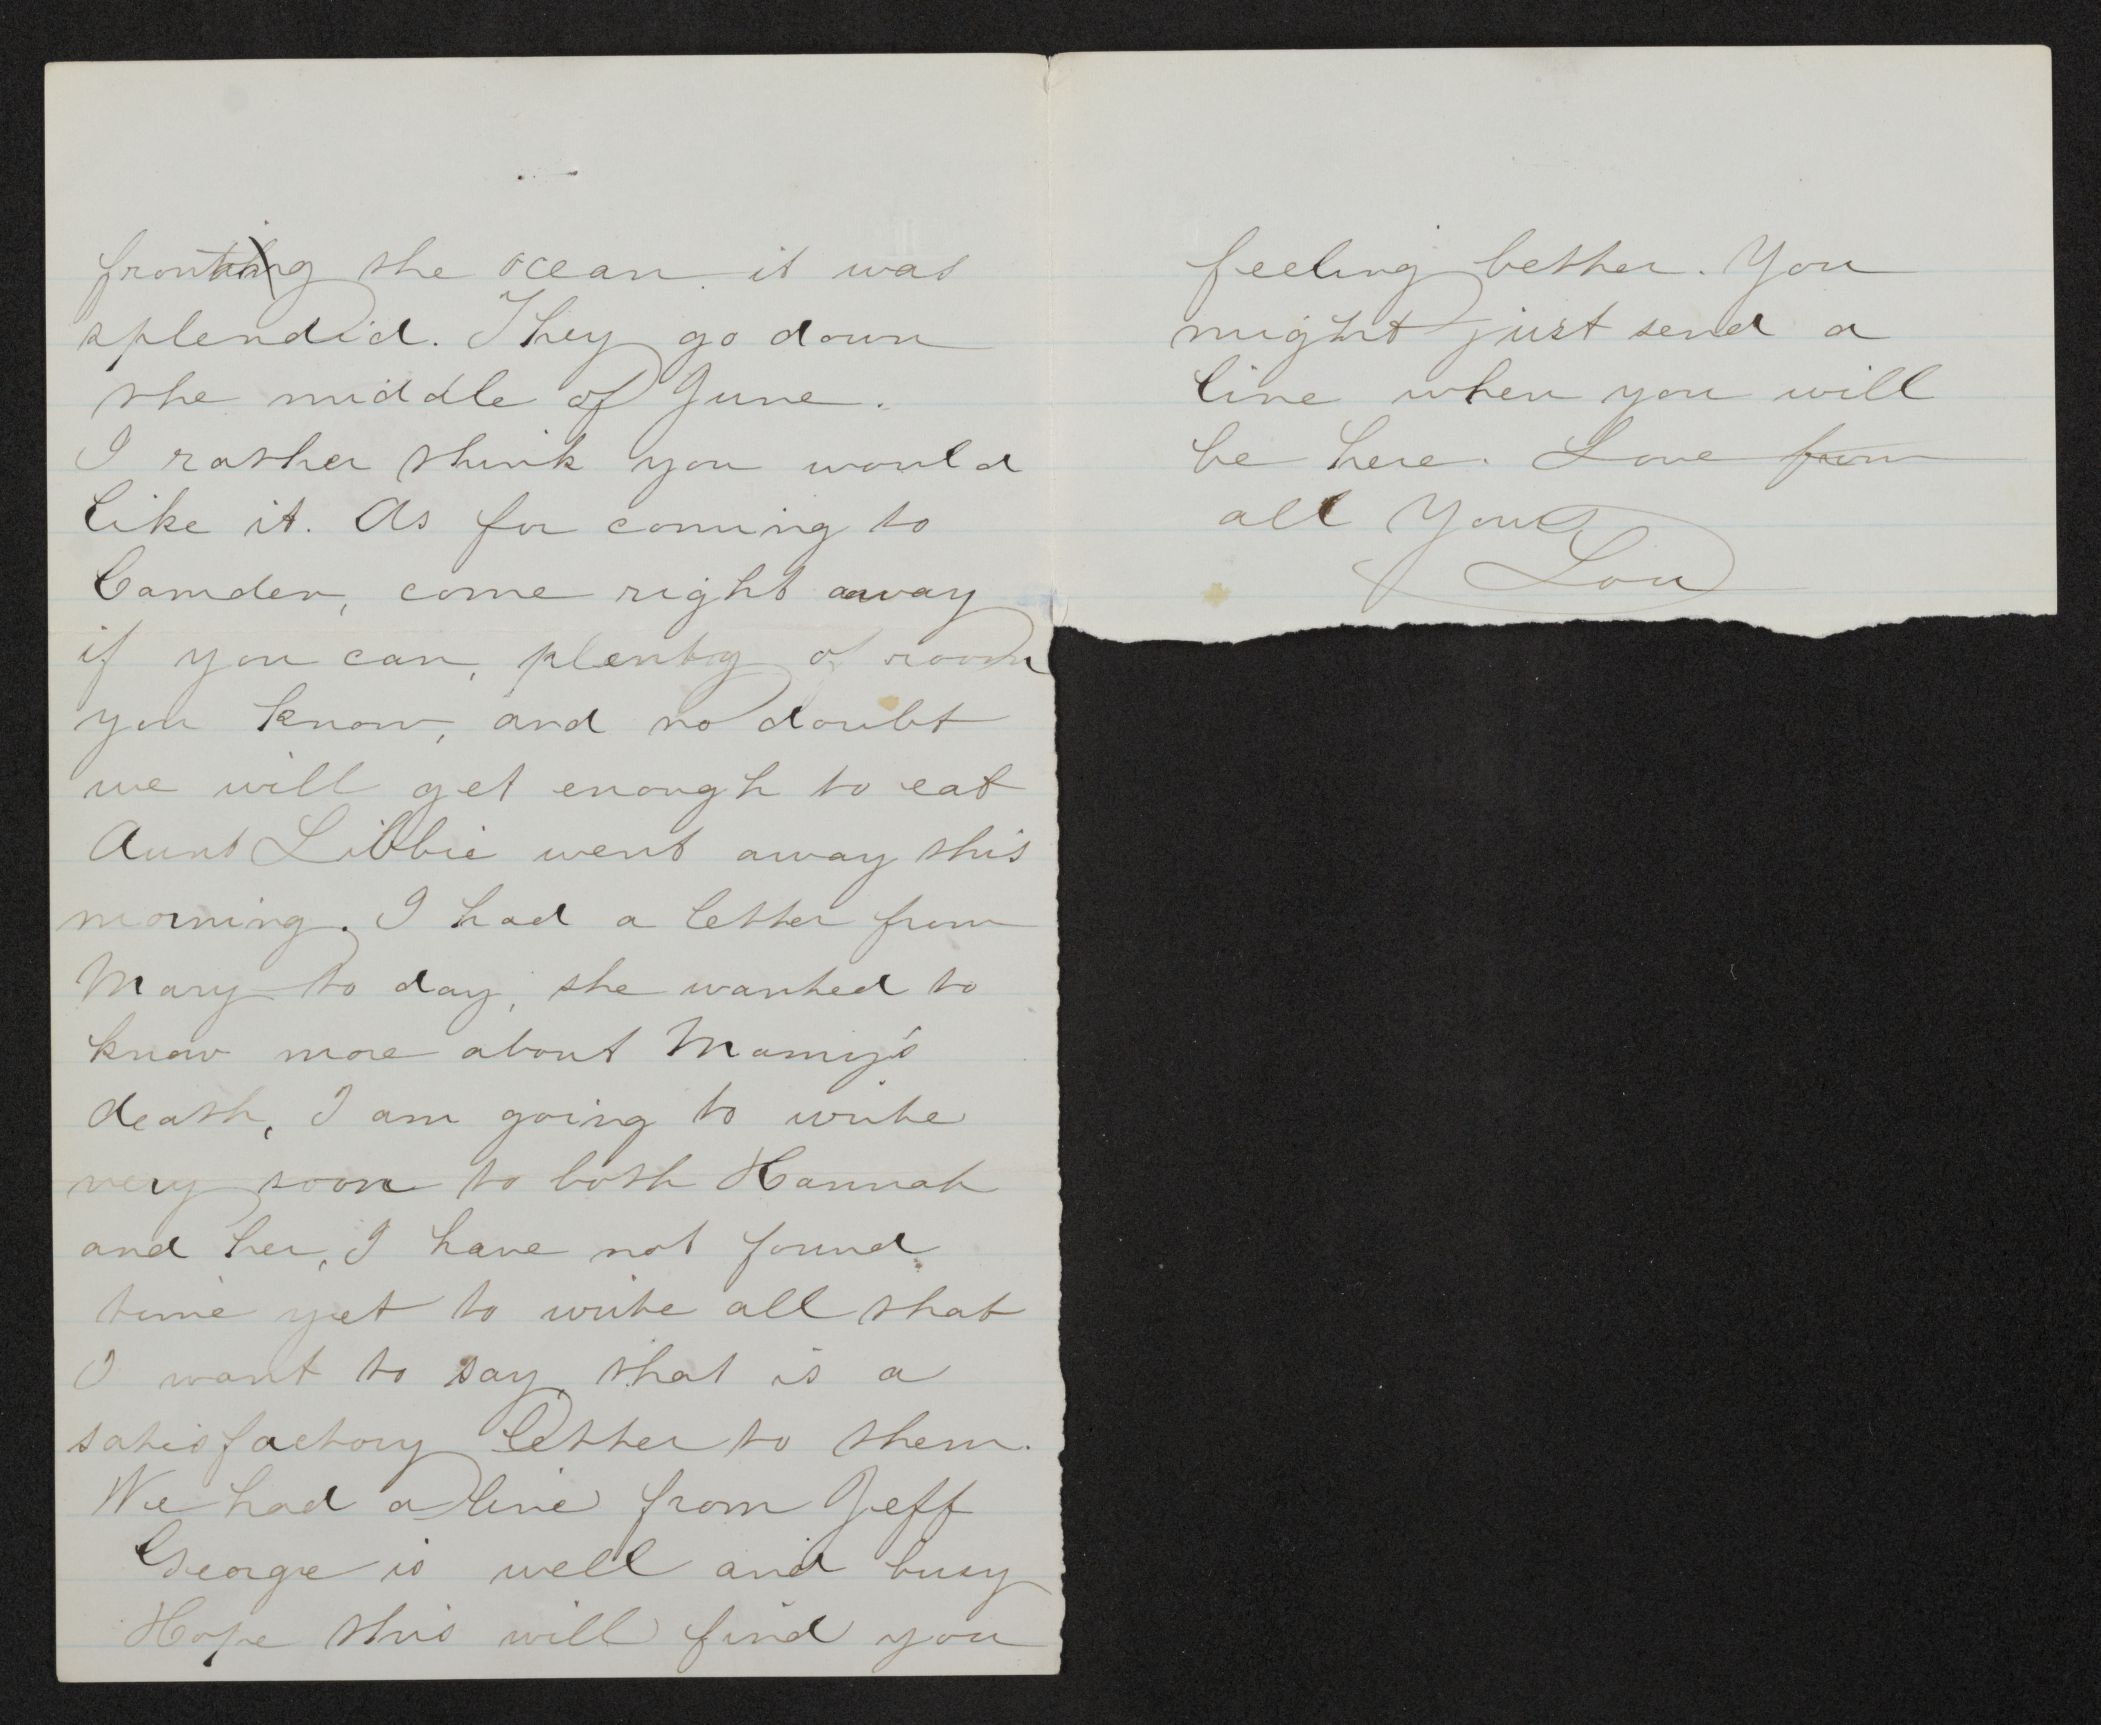 fronting the ocean it was
splendid. They go down
the middle of June.
I rather think you would
like it. As for coming to
Camden, come right away
if you can, plenty of room
you know, and no doubt
we will get enough to eat
Aunt Libbie went away this
morning. I had a letter from
Mary to day, she wanted to
know more about Mamy's
death, I am going to write
very soon to both Hannah
and her, I have not found
time yet to write all that
I want to say, that is a
satisfactory letter to them.
We had a line from Jeff
George is well and busy
Hope this will find you
feeling better. You
might just send a
line when you will
be here. Love from
all Yours
Lou